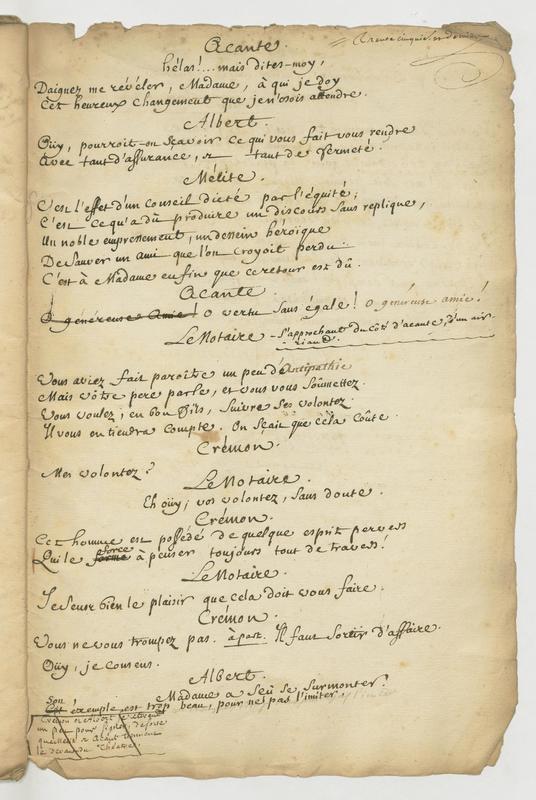 Acante.
hélas!... mais dites-moy,
Daignez me révéler, Madame, à qui je doy
Cet heureux changement que je n'osois attendre.
Albert.
Oüy, pourroit-on sçavoir ce qui vous fait vous rendre
Avec tant d'assurance, & tant de fermeté.
Mélite.
C'est l'effet d'un Conseil dicté par l'équité;
C'est ce qu'a dû produire un discours sans replique,
Un noble empressement, un dessein héroïque
De Sauver un ami que l'on Croyoit perdu.
C'est à Madame enfin que ce retour est dû.
Acante.
O généreuse Amie! o vertu Sans égale! o généreuse amie!
Le Notaire - s'approchant du côté d'acante, d'un air
riand.
Vous aviez fait paroître un peu d'Antipathie
Mais vôtre pere parle, et vous vous Soûmettez.
Vous voulez, en bon Fils, Suivre Ses volontez.
Il vous en tiendra Compte. On Sçait que cela Coûte.
Crémon.
Mes volontez?
Le Notaire.
Eh oüy; vos volontez, Sans doute.
Crémon.
Cet homme est possédé de quelque esprit pervers
Qui le force à penser toujours tout de travers!
Le Notaire.
Je Sens bien le plaisir que cela doit vous faire.
Crémon.
Vous ne vous trompez pas. à part. Il faut Sortir d'affaire.
Oüy, je consens.
Albert.
Madame a Sçû Se Surmonter.
Son exemple est trop beau, pour ne pas l'imiter.
un peu pour
le devant du Théatre.